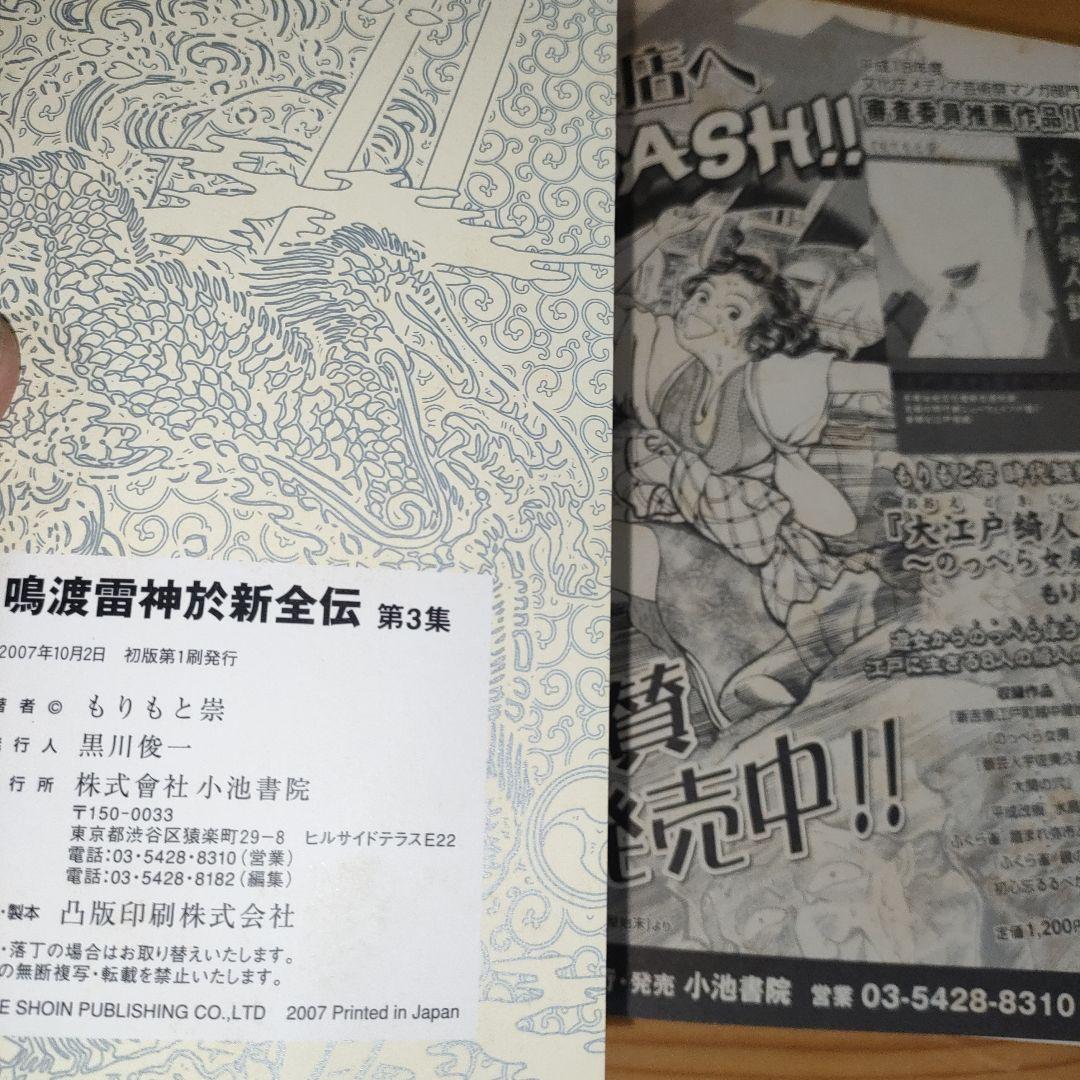 鳴渡雷神於新全伝 第3集
2007年10月2日 初版第1刷発行
著者 © もりもと崇
行人 黒川俊一
行所 株式會社小池書院
〒150-0033
東京都渋谷区猿楽町29-8 ヒルサイドテラスE22
電話:03・5428・8310(営業)
電話:03・5428・8182(編集)
・製本 凸版印刷株式会社
・落丁の場合はお取り替えいたします。
の無断複写・転載を禁止いたします。
E SHOIN PUBLISHING CO.,LTD 2007 Printed in Japan
店へ
ASH!!
平成18年度
文化庁メディア芸術祭マンガ部門
審査委員推薦作品!!
大江戸綺人
もりもと崇 時代
おおえどきじん
『大江戸綺人
〜のっぺら女房
もり
収録作品
『のっぺら女房
大間の穴
平成改 水
ふくら雀
ふくら雀
初心忘るるべか
定価1,200円
賛
発売中!!
より
行・発売 小池書院 営業 03-5428-8310